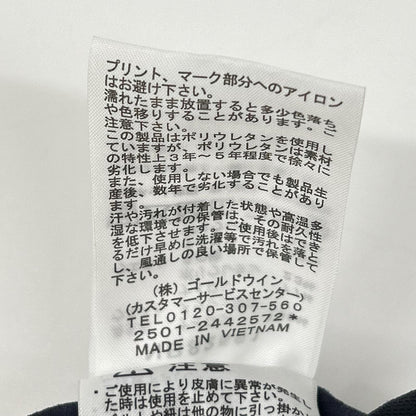 プリント、マーク部分へのアイロン
はお避け下さい。
濡れたまま放置すると多少色落ち
や色移りすることがあります。ご
注意下さい。
この製品はポリウレタンを使用し
ていますが、ポリウレタンは素材
の特性上3年～5年程度で徐々に
劣化します。
また、使用しない場合でも製品生
産後、数年で劣化することがあり
ます。
汗や汚れが付着した状態や高湿多
湿な環境での保管は、その耐久性
を低下させます。ご使用後は汚れを落と
るだけ早めに洗濯等で汚れを落と
し、風通しの良い場所で保管して
下さい。
(株)ゴールドウイン
(カスタマーサービスセンター)
TEL0120-307-560
2501-2442572*
MADE IN VIETNAM
注意
・ご使用により皮膚に異常が発生し
た時は使用を止め
や紐は他の物に引っ掛か